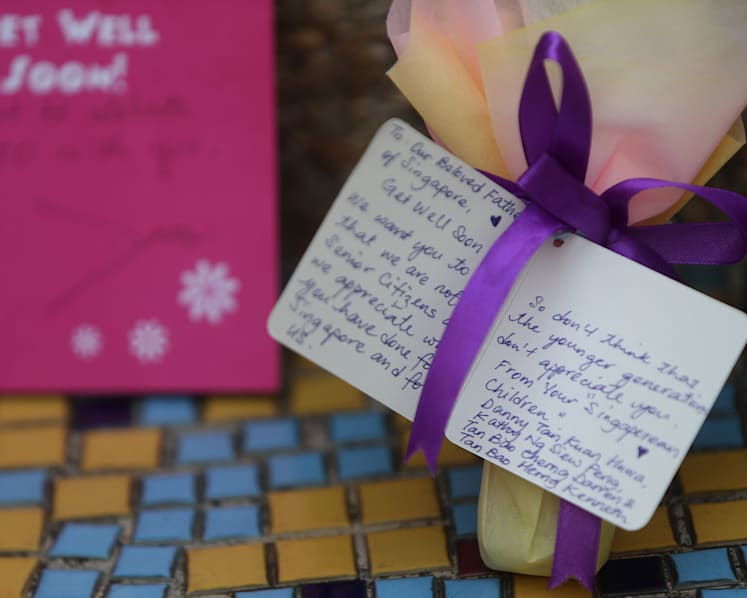 ET WELL
SOON!
To: Our Beloved Fathe
of Singapore,
Get Well Soon
We want you to
that we are not
Senior Citizens
we appreciate w
you have done fo
Singapore and fo
us.
So don't think that
the younger generation
don't appreciate you.
From Your "Singaporean
Children"
Danny Tan Kuan Huwa,
Kathy Ng Siew Peng,
Tan Bao Cheng Darren &
Tan Bao Herng Kenneth